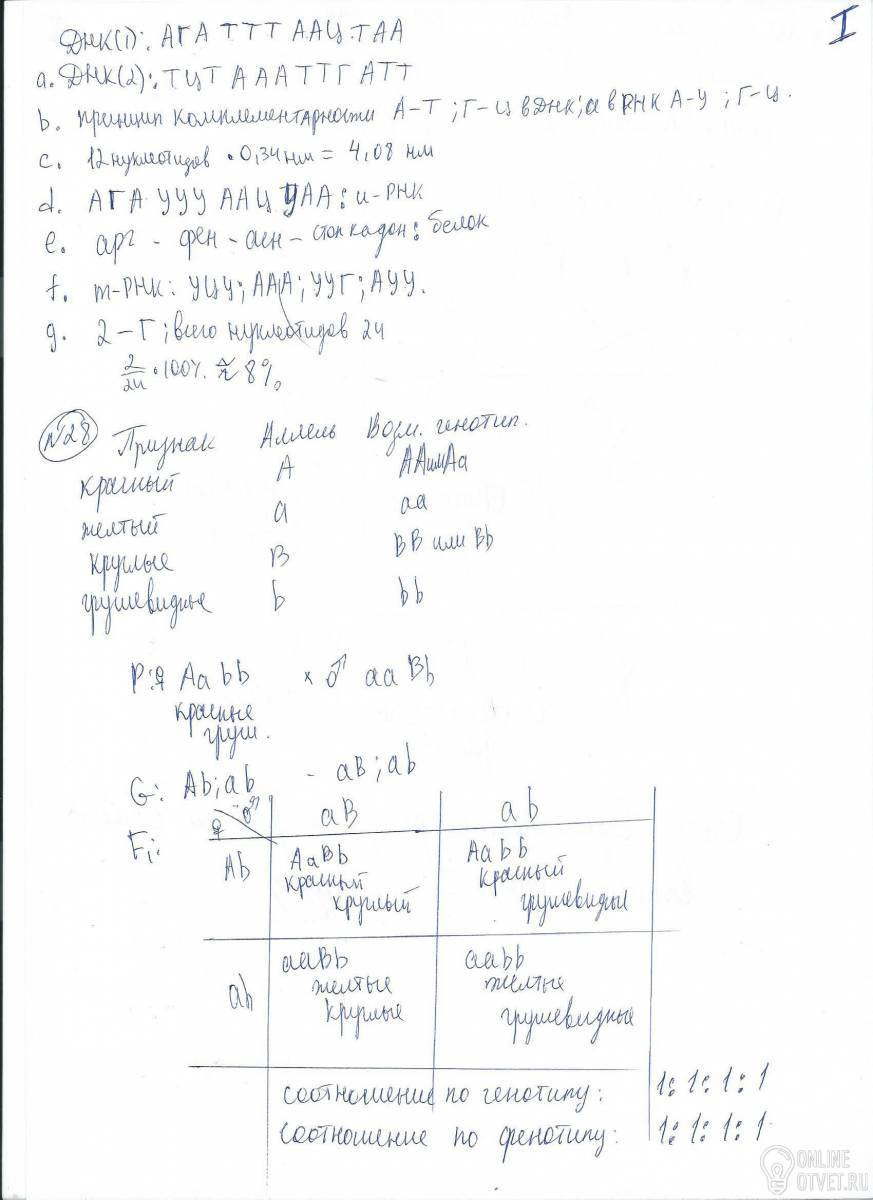 I
ДНК(1): АГА ТТТ ААЦ ТАА
a. ДНК(2): ТЦТ АААТТГАТТ
b. принцип комплементарности А-Т ; Г-Ц в ДНК; а в РНК А-У ; Г-Ц.
c. 12 нуклеотидов • 0,34 нм = 4,08 нм
d. АГА УУУ ААЦ УАА: и-РНК
e. арг - фен - асн - стоп кадон: белок
f. т-РНК: УЦУ; ААА; УУГ; АУУ.
g. 2 - Г; всего нуклеотидов 24
2/24 • 100% ≈ 8%
№28 Признак Аллель Возм. генотип.
красный А АА или Аа
желтый а аа
круглые В ВВ или Вb
грушевидные b bb
P: ♀ Aa bb × ♂ aa Bb
красные
груш.
G: Ab; ab - aB; ab
F₁: ♀ ♂ aB ab
Ab AaBb Aabb
красный красный
круглый грушевидные
ab aaBb aabb
желтые желтые
круглые грушевидные
соотношение по генотипу: 1:1:1:1
соотношение по фенотипу: 1:1:1:1
ONLINE
OTVET.RU